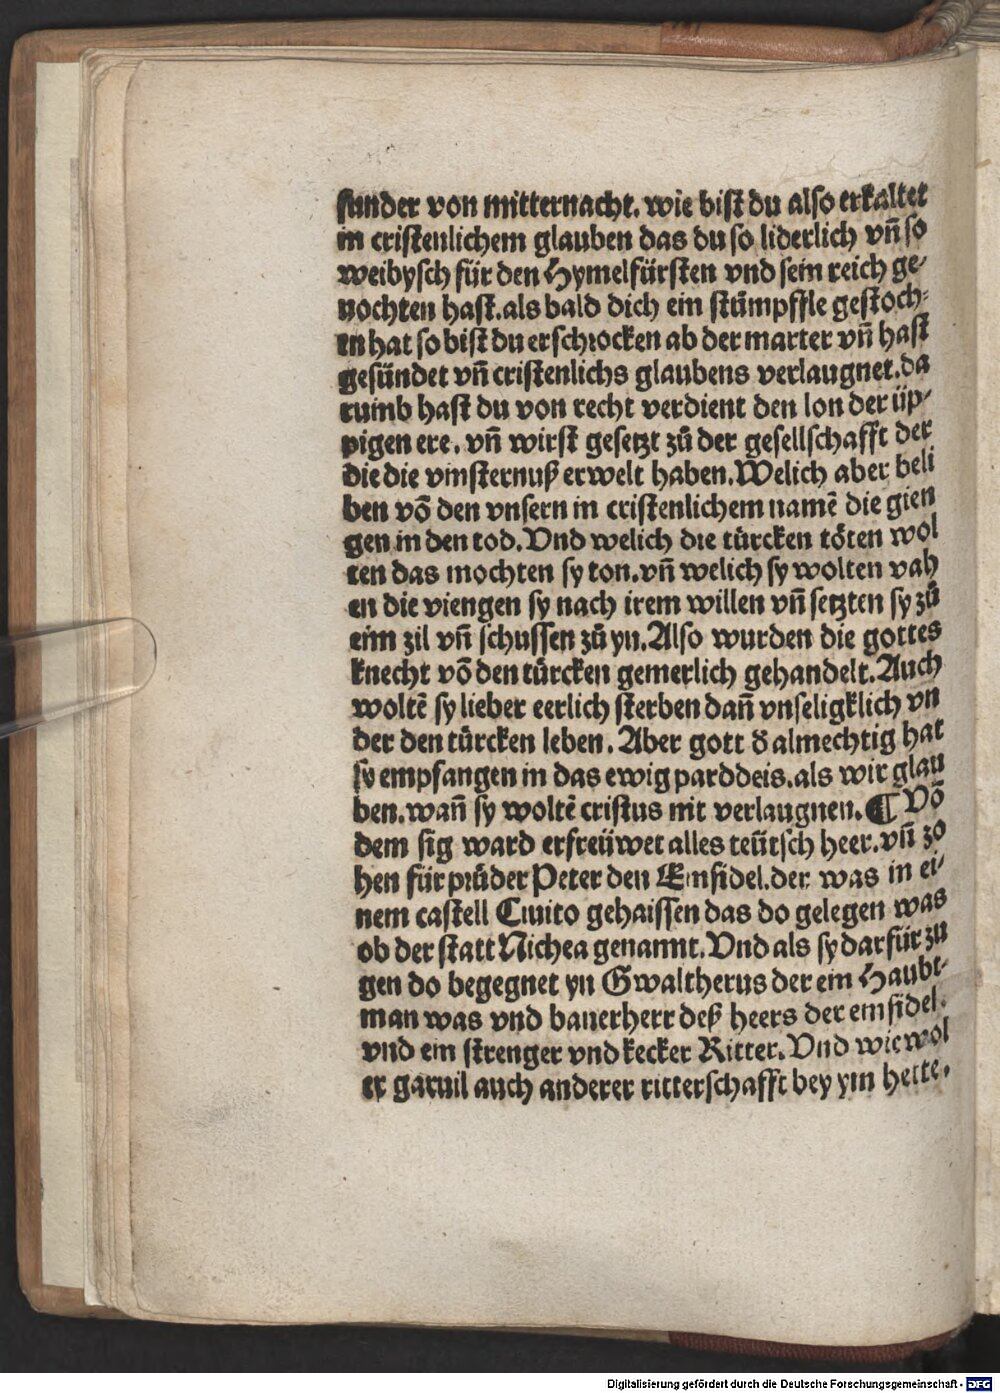 sunder von mitternacht. wie bist du also erkaltet
in cristenlichem glauben das du so liderlich vñ so
weibysch für den Hymelfürsten vnd sein reich ge⸗
uochten hast. als bald dich ein stümpffle gestoch⸗
en hat so bist du erschrocken ab der marter vñ hast
gesündet vñ cristenlichs glaubens verlaugnet. da
rumb hast du von recht verdient den lon der üp⸗
pigen ere. vñ wirst gesetzt zů der gesellschafft der
die die vinsternuß erwelt haben. Welich aber beli
ben võ den vnsern in cristenlichem namẽ die gien
gen in den tod. Vnd welich die türcken töten wol
ten das mochten sy ton. vñ welich sy wolten vah
en die viengen sy nach irem willen vñ setzten sy zů
eim zil vñ schussen zů yn. Also wurden die gottes
knecht võ den türcken gemerlich gehandelt. Auch
woltẽ sy lieber eerlich sterben dañ vnseligklich vn
der den türcken leben. Aber gott d̕ almechtig hat
sy empfangen in das ewig parddeis. als wir glau
ben. wañ sy woltẽ cristus nit verlaugnen. ¶ Võ
dem sig ward erfreüwet alles teütsch heer. vñ zo
hen für průder Peter den Einsidel. der was in ei⸗
nem castell Ciuito gehaissen das do gelegen was
ob der statt Nichea genannt. Vnd als sy darfür zu
gen do begegnet yn Gwaltherus der ein Haubt⸗
man was vnd banerherr deß heers der einsidel.
vnd ein strenger vnd kecker Ritter. Vnd wiewol
er garuil auch anderer ritterschafft bey ym hette.
Digitalisierung gefördert durch die Deutsche Forschungsgemeinschaft - DFG